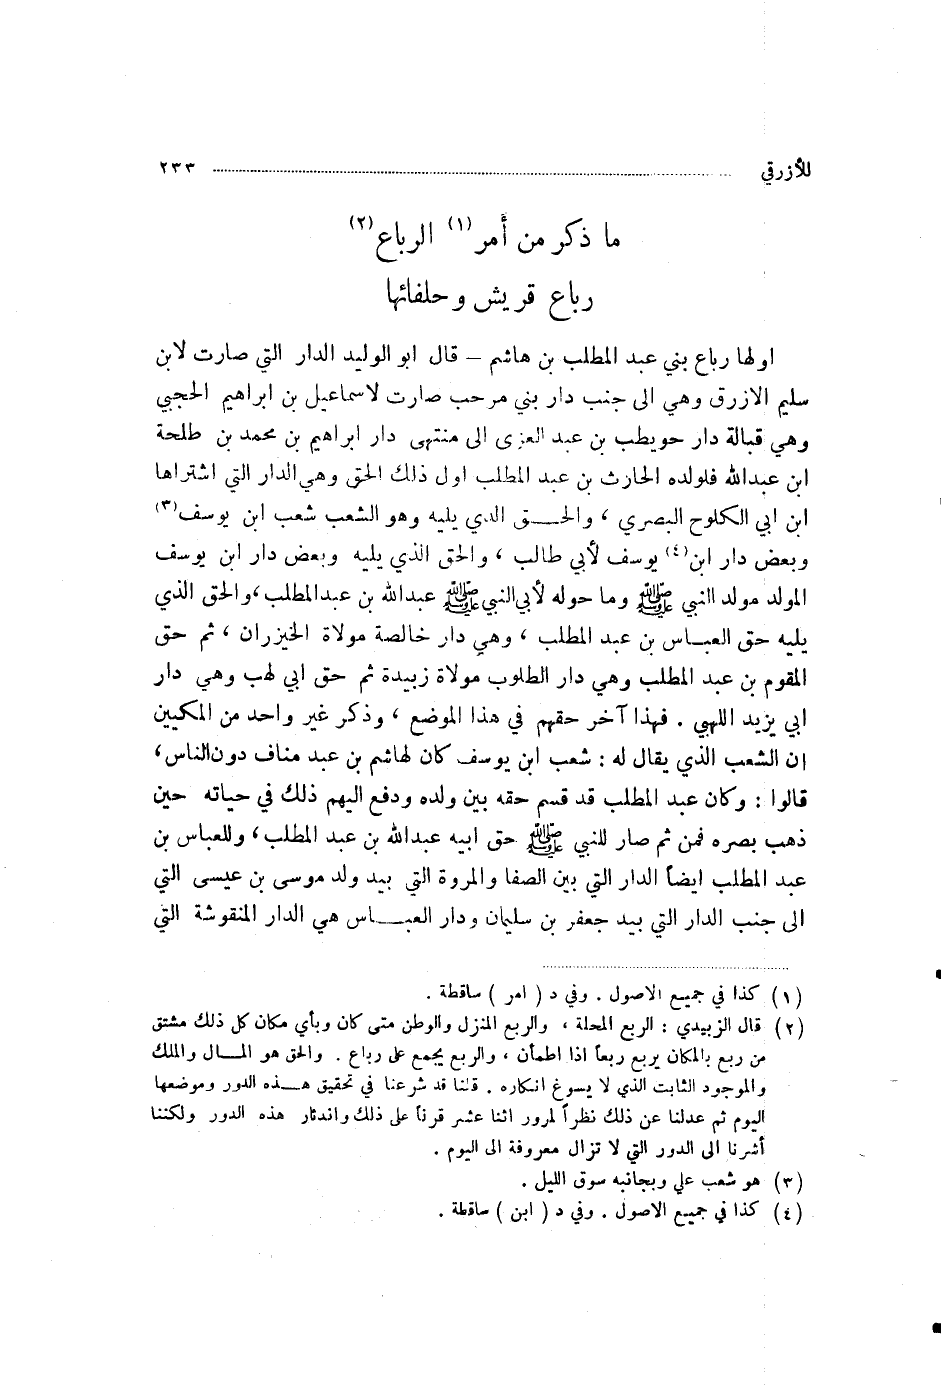 للأزرقي ٢٣٣
ما ذكر من أمر (١) الرباع (٢)
رباع قريش وحلفائها
اولها رباع بني عبد المطلب بن هاشم – قال ابو الوليد الدار التي صارت لابن
سليم الازرق وهي الى جنب دار بني مرحب صارت لاسماعيل بن ابراهيم الحجبي
وهي قبالة دار حويطب بن عبد العزى الى منتهى دار ابراهيم بن محمد بن طلحة
ابن عبدالله فلولده الحارث بن عبد المطلب اول ذلك الحق وهي الدار التي اشتراها
ابن ابي الكلوح البصري ، والحـــق الذي يليه وهو الشعب شعب ابن يوسف (٣)
وبعض دار ابن (٤) يوسف لأبي طالب ، والحق الذي يليه وبعض دار ابن يوسف
المولد مولد النبي ﷺ وما حوله لأبي النبي ﷺ عبدالله بن عبدالمطلب ، والحق الذي
يليه حق العبـاس بن عبد المطلب ، وهي دار خالصة مولاة الخيزران ، ثم حق
المقوم بن عبد المطلب وهي دار الطلوب مولاة زبيدة ثم حق ابي لهب وهي دار
ابي يزيد اللهبي . فهذا آخر حقهم في هذا الموضع ، وذكر غير واحد من المكيين
إن الشعب الذي يقال له : شعب ابن يوسف كان لهاشم بن عبد مناف دون الناس ،
قالوا : وكان عبد المطلب قد قسم حقه بين ولده ودفع اليهم ذلك في حياته حين
ذهب بصره فمن ثم صار للنبي ﷺ حق ابيه عبدالله بن عبد المطلب ، وللعباس بن
عبد المطلب ايضاً الدار التي بين الصفا والمروة التي بيد ولد موسى بن عيسى التي
الى جنب الدار التي بيد جعفر بن سليمان ودار العبــاس هي الدار المنقوشة التي
(١) كذا في جميع الاصول . وفي د ( امر ) ساقطة .
(٢) قال الزبيدي : الربع المحلة ، والربع المنزل والوطن متى كان وبأي مكان كل ذلك مشتق
من ربع بالمكان يربع ربعاً اذا اطمأن ، والربع يجمع على رباع . والحق هو المـال والملك
والموجود الثابت الذي لا يسوغ انكاره . قلنا قد شرعنا في تحقيق هـذه الدور وموضعها
اليوم ثم عدلنا عن ذلك نظراً لمرور اثنا عشر قرناً على ذلك واندثار هذه الدور ولكننا
أشرنا الى الدور التي لا تزال معروفة الى اليوم .
(٣) هو شعب علي وبجانبه سوق الليل .
(٤) كذا في جميع الاصول . وفي د ( ابن ) ساقطة .